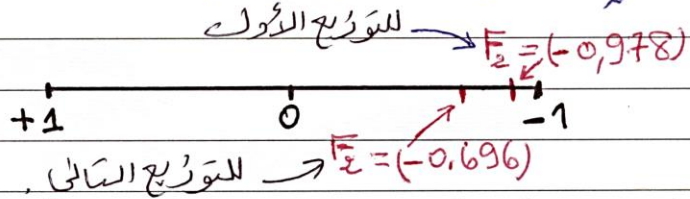 للتوزيع الأول → F₂ = (-0,978)
+1 0 -1
للتوزيع الثاني → F₂ = (-0.696)